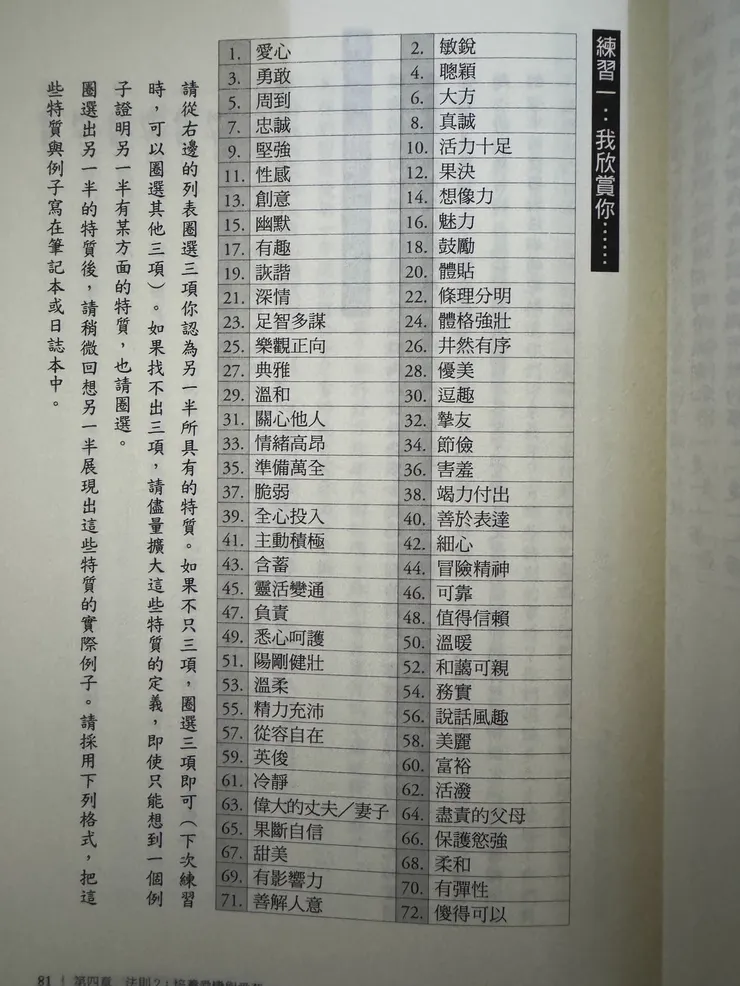 練習一：我欣賞你……
1. 愛心 2. 敏銳
3. 勇敢 4. 聰穎
5. 周到 6. 大方
7. 忠誠 8. 真誠
9. 堅強 10. 活力十足
11. 性感 12. 果決
13. 創意 14. 想像力
15. 幽默 16. 魅力
17. 有趣 18. 鼓勵
19. 詼諧 20. 體貼
21. 深情 22. 條理分明
23. 足智多謀 24. 體格強壯
25. 樂觀正向 26. 井然有序
27. 典雅 28. 優美
29. 溫和 30. 逗趣
31. 關心他人 32. 摯友
33. 情緒高昂 34. 節儉
35. 準備萬全 36. 害羞
37. 脆弱 38. 竭力付出
39. 全心投入 40. 善於表達
41. 主動積極 42. 細心
43. 含蓄 44. 冒險精神
45. 靈活變通 46. 可靠
47. 負責 48. 值得信賴
49. 悉心呵護 50. 溫暖
51. 陽剛健壯 52. 和藹可親
53. 溫柔 54. 務實
55. 精力充沛 56. 說話風趣
57. 從容自在 58. 美麗
59. 英俊 60. 富裕
61. 冷靜 62. 活潑
63. 偉大的丈夫／妻子 64. 盡責的父母
65. 果斷自信 66. 保護慾強
67. 甜美 68. 柔和
69. 有影響力 70. 有彈性
71. 善解人意 72. 傻得可以
請從右邊的列表圈選三項你認為另一半所具有的特質。如果不只三項，圈選三項即可（下次練習
時，可以圈選其他三項）。如果找不出三項，請儘量擴大這些特質的定義，即使只能想到一個例
子證明另一半有某方面的特質，也請圈選。
圈選出另一半的特質後，請稍微回想另一半展現出這些特質的實際例子。請採用下列格式，把這
些特質與例子寫在筆記本或日誌本中。
81 | 第四章 法則2：